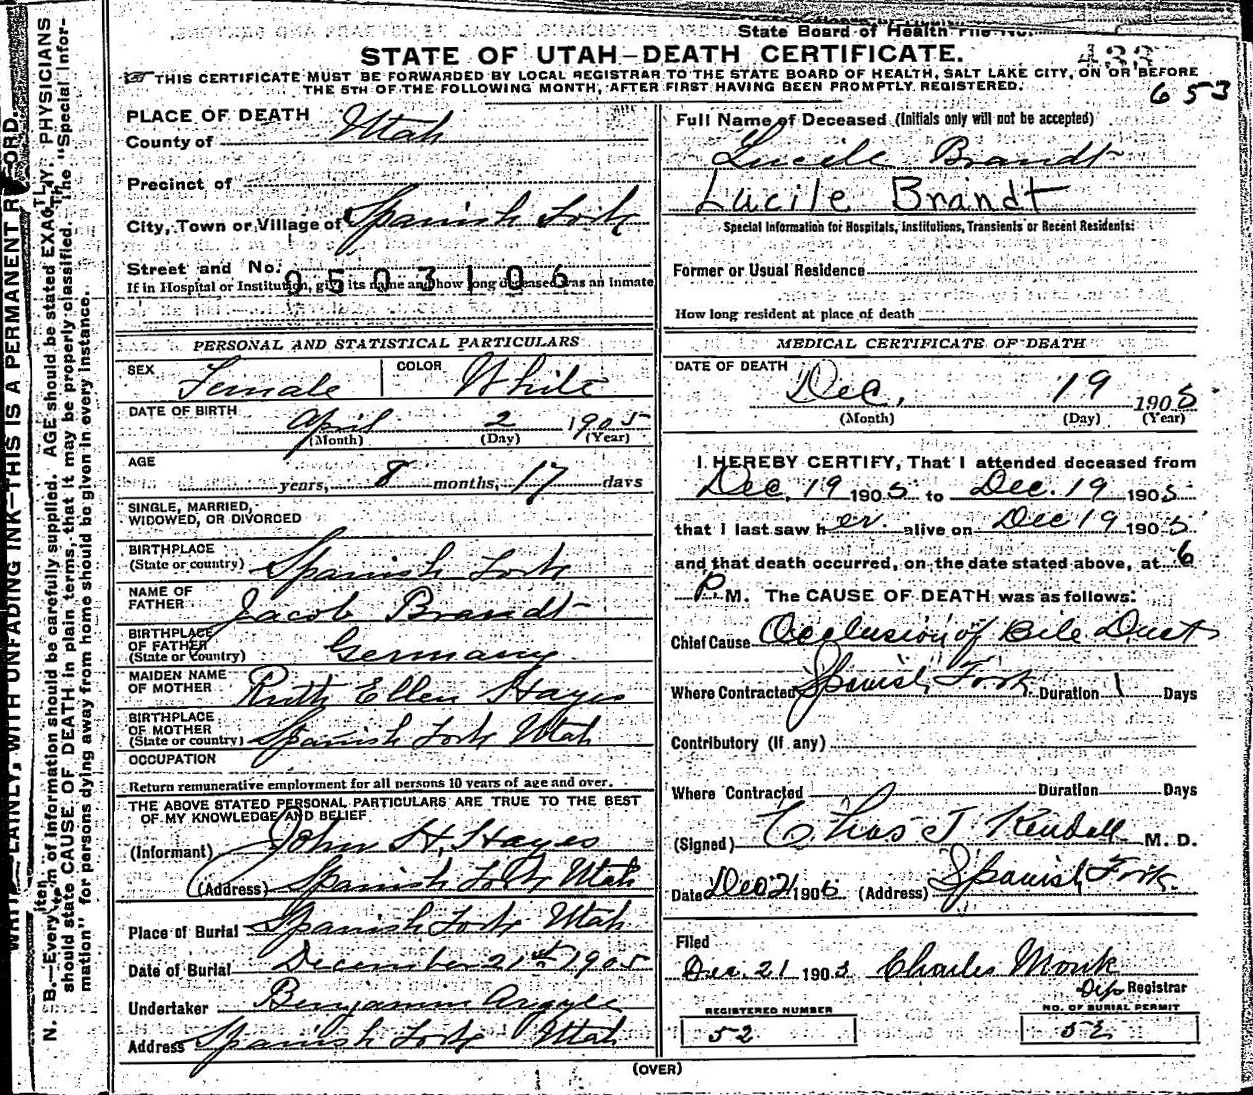 State Board of Health File No.
STATE OF UTAH—DEATH CERTIFICATE.
433
THIS CERTIFICATE MUST BE FORWARDED BY LOCAL REGISTRAR TO THE STATE BOARD OF HEALTH, SALT LAKE CITY, ON OR BEFORE
THE 5TH OF THE FOLLOWING MONTH, AFTER FIRST HAVING BEEN PROMPTLY REGISTERED.
653
PLACE OF DEATH
County of Utah
Precinct of
City, Town or Village of Spanish Fork
Street and No.
0503106
If in Hospital or Institution, give its name and how long deceased was an Inmate
PERSONAL AND STATISTICAL PARTICULARS
SEX Female COLOR White
DATE OF BIRTH April 2 1905
(Month) (Day) (Year)
AGE
years, 8 months, 17 days
SINGLE, MARRIED,
WIDOWED, OR DIVORCED
BIRTHPLACE
(State or country) Spanish Fork
NAME OF
FATHER Jacob Brandt
BIRTHPLACE
OF FATHER
(State or country) Germany
MAIDEN NAME
OF MOTHER Ruth Ellen Hayes
BIRTHPLACE
OF MOTHER
(State or country) Spanish Fork Utah
OCCUPATION
Return remunerative employment for all persons 10 years of age and over.
THE ABOVE STATED PERSONAL PARTICULARS ARE TRUE TO THE BEST
OF MY KNOWLEDGE AND BELIEF
(Informant) John H. Hayes
(Address) Spanish Fork Utah
Place of Burial Spanish Fork Utah
Date of Burial December 21st 1905
Undertaker Benjamin Argyle
Address Spanish Fork Utah
Full Name of Deceased (Initials only will not be accepted)
Lucile Brandt
Lucile Brandt
Special Information for Hospitals, Institutions, Transients or Recent Residents:
Former or Usual Residence
How long resident at place of death
MEDICAL CERTIFICATE OF DEATH
DATE OF DEATH Dec. 19 1905
(Month) (Day) (Year)
I HEREBY CERTIFY, That I attended deceased from
Dec. 19 1905 to Dec. 19 1905
that I last saw her alive on Dec 19 1905
and that death occurred, on the date stated above, at 6
P. M. The CAUSE OF DEATH was as follows:
Chief Cause Occlusion of Bile Duct
Where Contracted Spanish Fork Duration 1 Days
Contributory (If any)
Where Contracted Duration Days
(Signed) Chas J Kendall M. D.
Date Dec 21 1905 (Address) Spanish Fork.
Filed
Dec. 21 1905 Charles Monk
Dep Registrar
REGISTERED NUMBER
52
NO. OF BURIAL PERMIT
52
(OVER)
WRITE PLAINLY, WITH UNFADING INK—THIS IS A PERMANENT RECORD.
N. B.—Every item of information should be carefully supplied. AGE should be stated EXACTLY. PHYSICIANS
should state CAUSE OF DEATH in plain terms, that it may be properly classified. The "Special Infor-
mation" for persons dying away from home should be given in every instance.